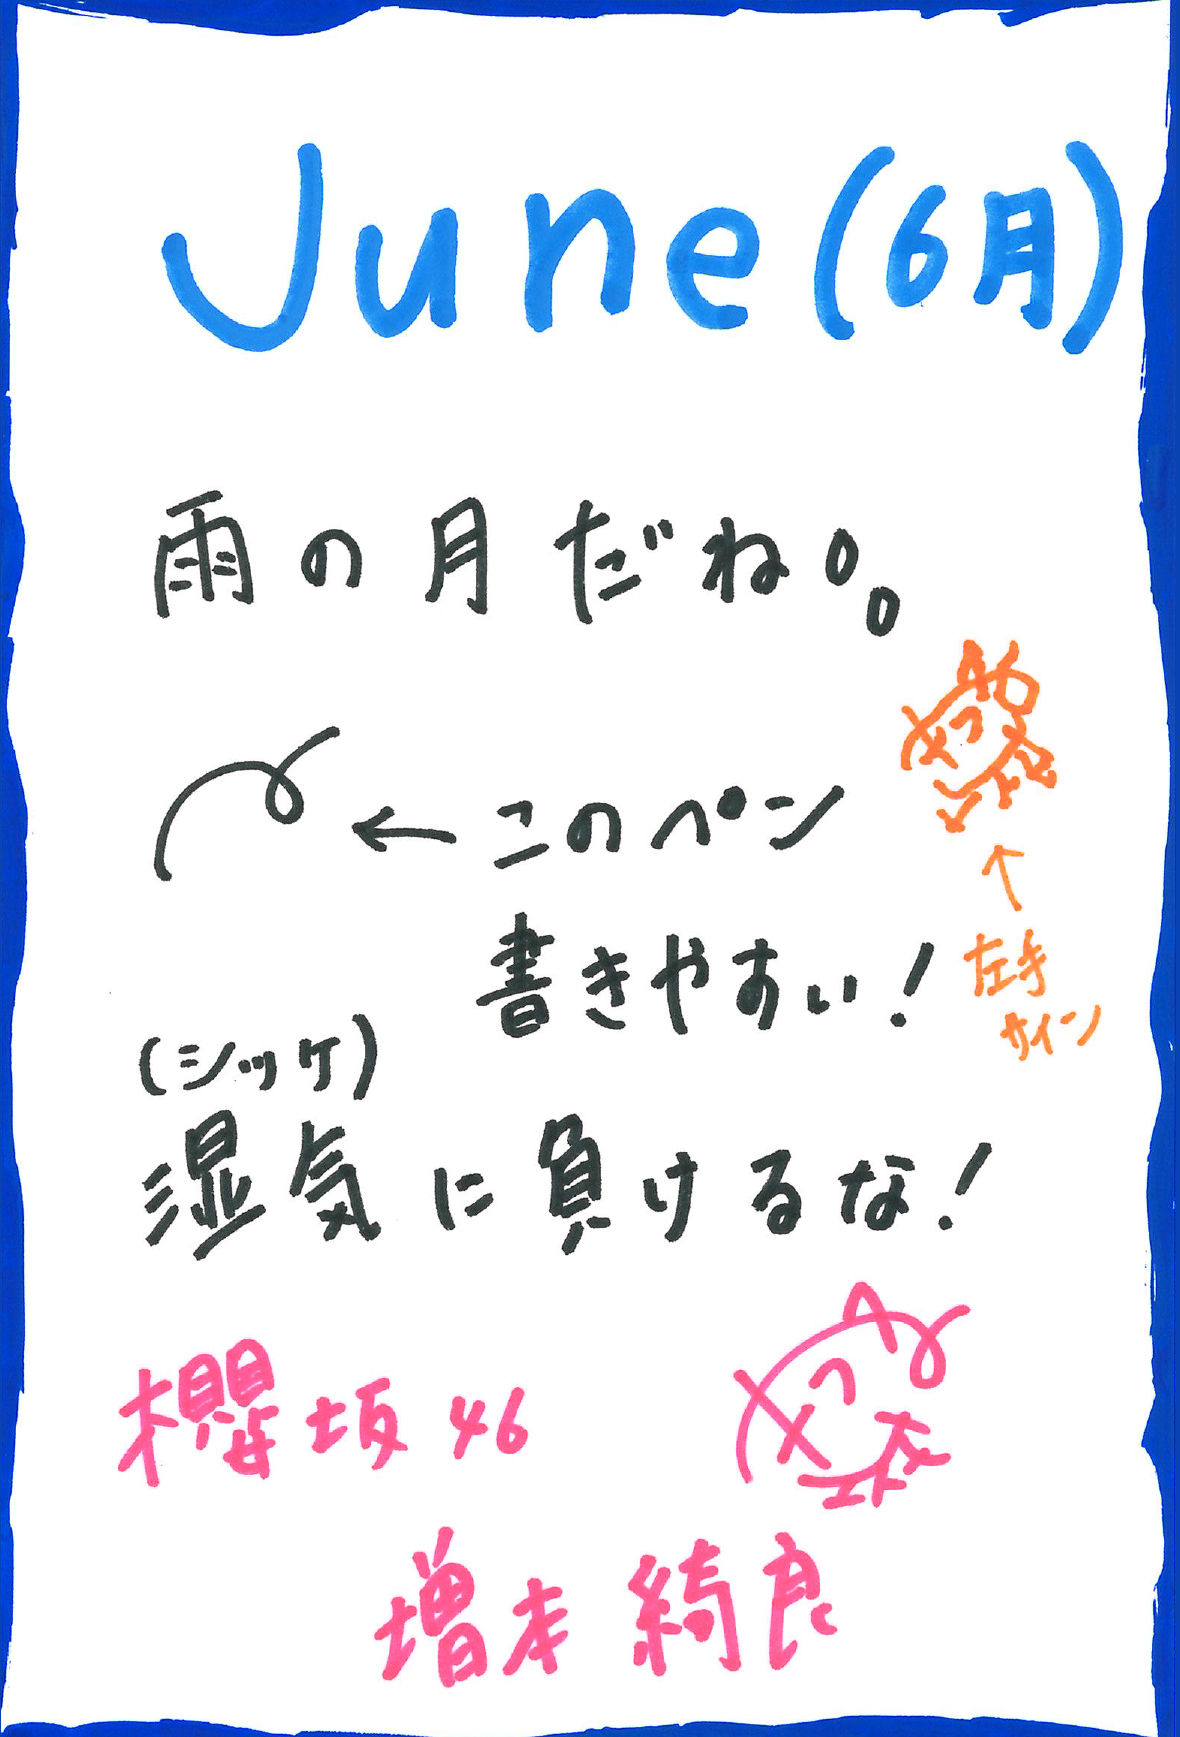 June(6月)
雨の月だね。。
←このペン
書きやすい!
↑
左手
サイン
(シツケ)
湿気に負けるな!
櫻坂46
増本綺良